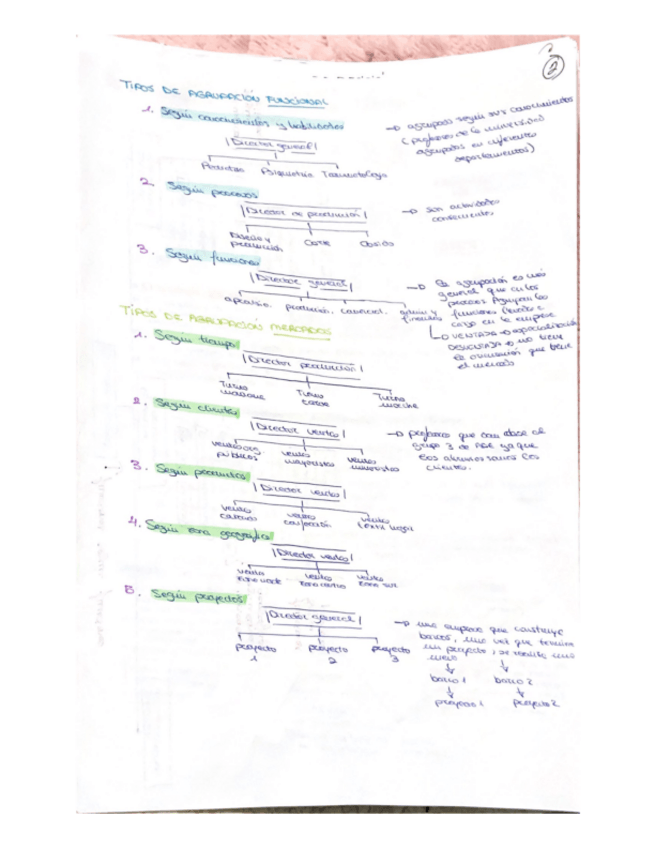 2
TIPOS DE AGRUPACIÓN FUNCIONAL
1. Según conocimientos y habilidades
→ agrupados según sus conocimientos
(profesores de la universidad
agrupados en diferentes
departamentos)
Director general
Pediatría Psiquiatría Traumatología
2. Según procesos
→ son actividades
consecutivas
Director de producción
Diseño y
producción
Corte
Cosido
3. Según funciones
→ la agrupación es más
general que en los
procesos
Director general
producción. comercial.
TIPOS DE AGRUPACIÓN MERCADOS
1. Según tiempo
Director producción
Turno
mañana
Turno
tarde
Turno
noche
2. Según clientes
→ profesores que dan clase al
grupo 3 de ADE ya que
los alumnos somos los
clientes.
Director ventas
ventas
mayoristas
ventas
minoristas
3. Según productos
Director ventas
ventas
ventas
confección
ventas
textil hogar
4. Según zona geográfica
Director ventas
ventas
zona norte
ventas
zona centro
ventas
zona sur
5. Según proyectos
Director general
proyecto
1
proyecto
2
proyecto
3
→ una empresa que construye
barcos, una vez que termina
un proyecto, se realiza uno
nuevo
barco 1
barco 2
proyecto 1
proyecto 2